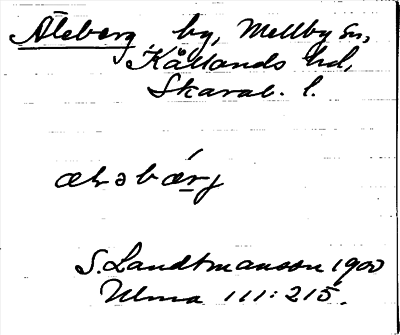 Åteberg by, Mellby sn,
Kållands hd,
Skarab. l.
ætəbærj
S. Landtmanson 1900
Ulma 111:215.